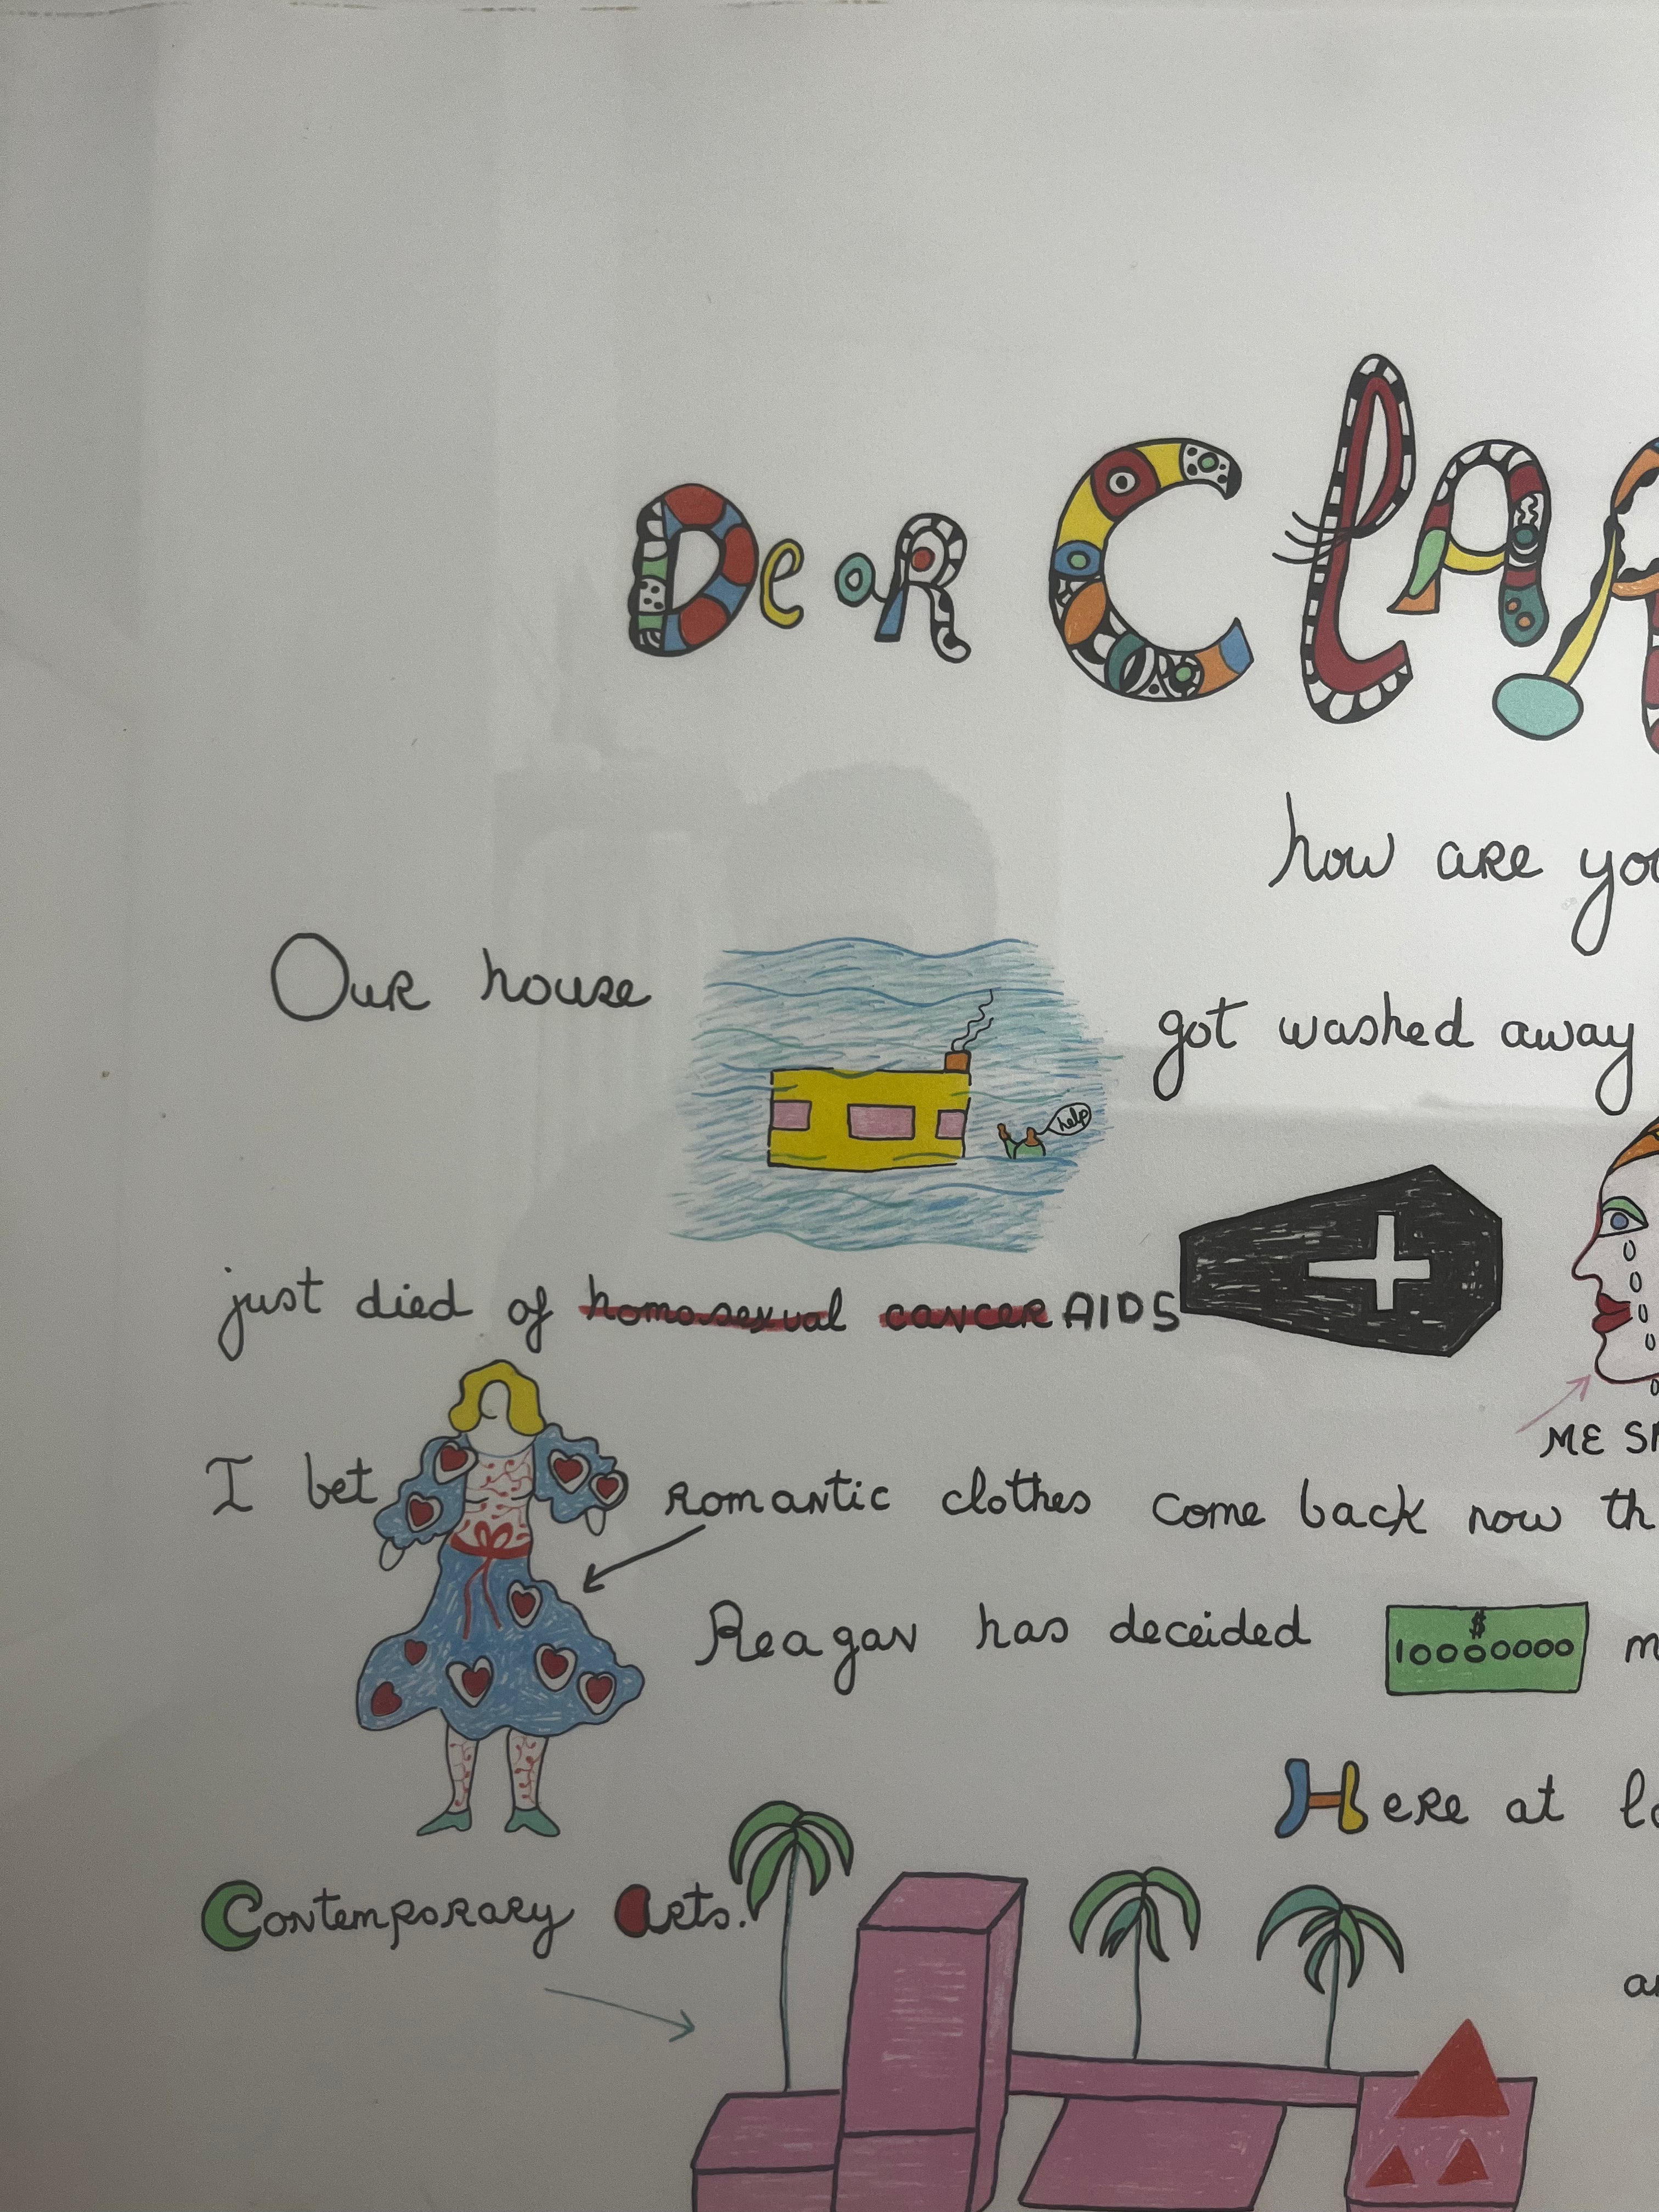 Dear Clar
how are you
Our house
got washed away
help
just died of homosexual cancer AIDS
ME
I bet romantic clothes come back now
Reagan has deceided
$
10000000
Here at
Contemporary Arts.